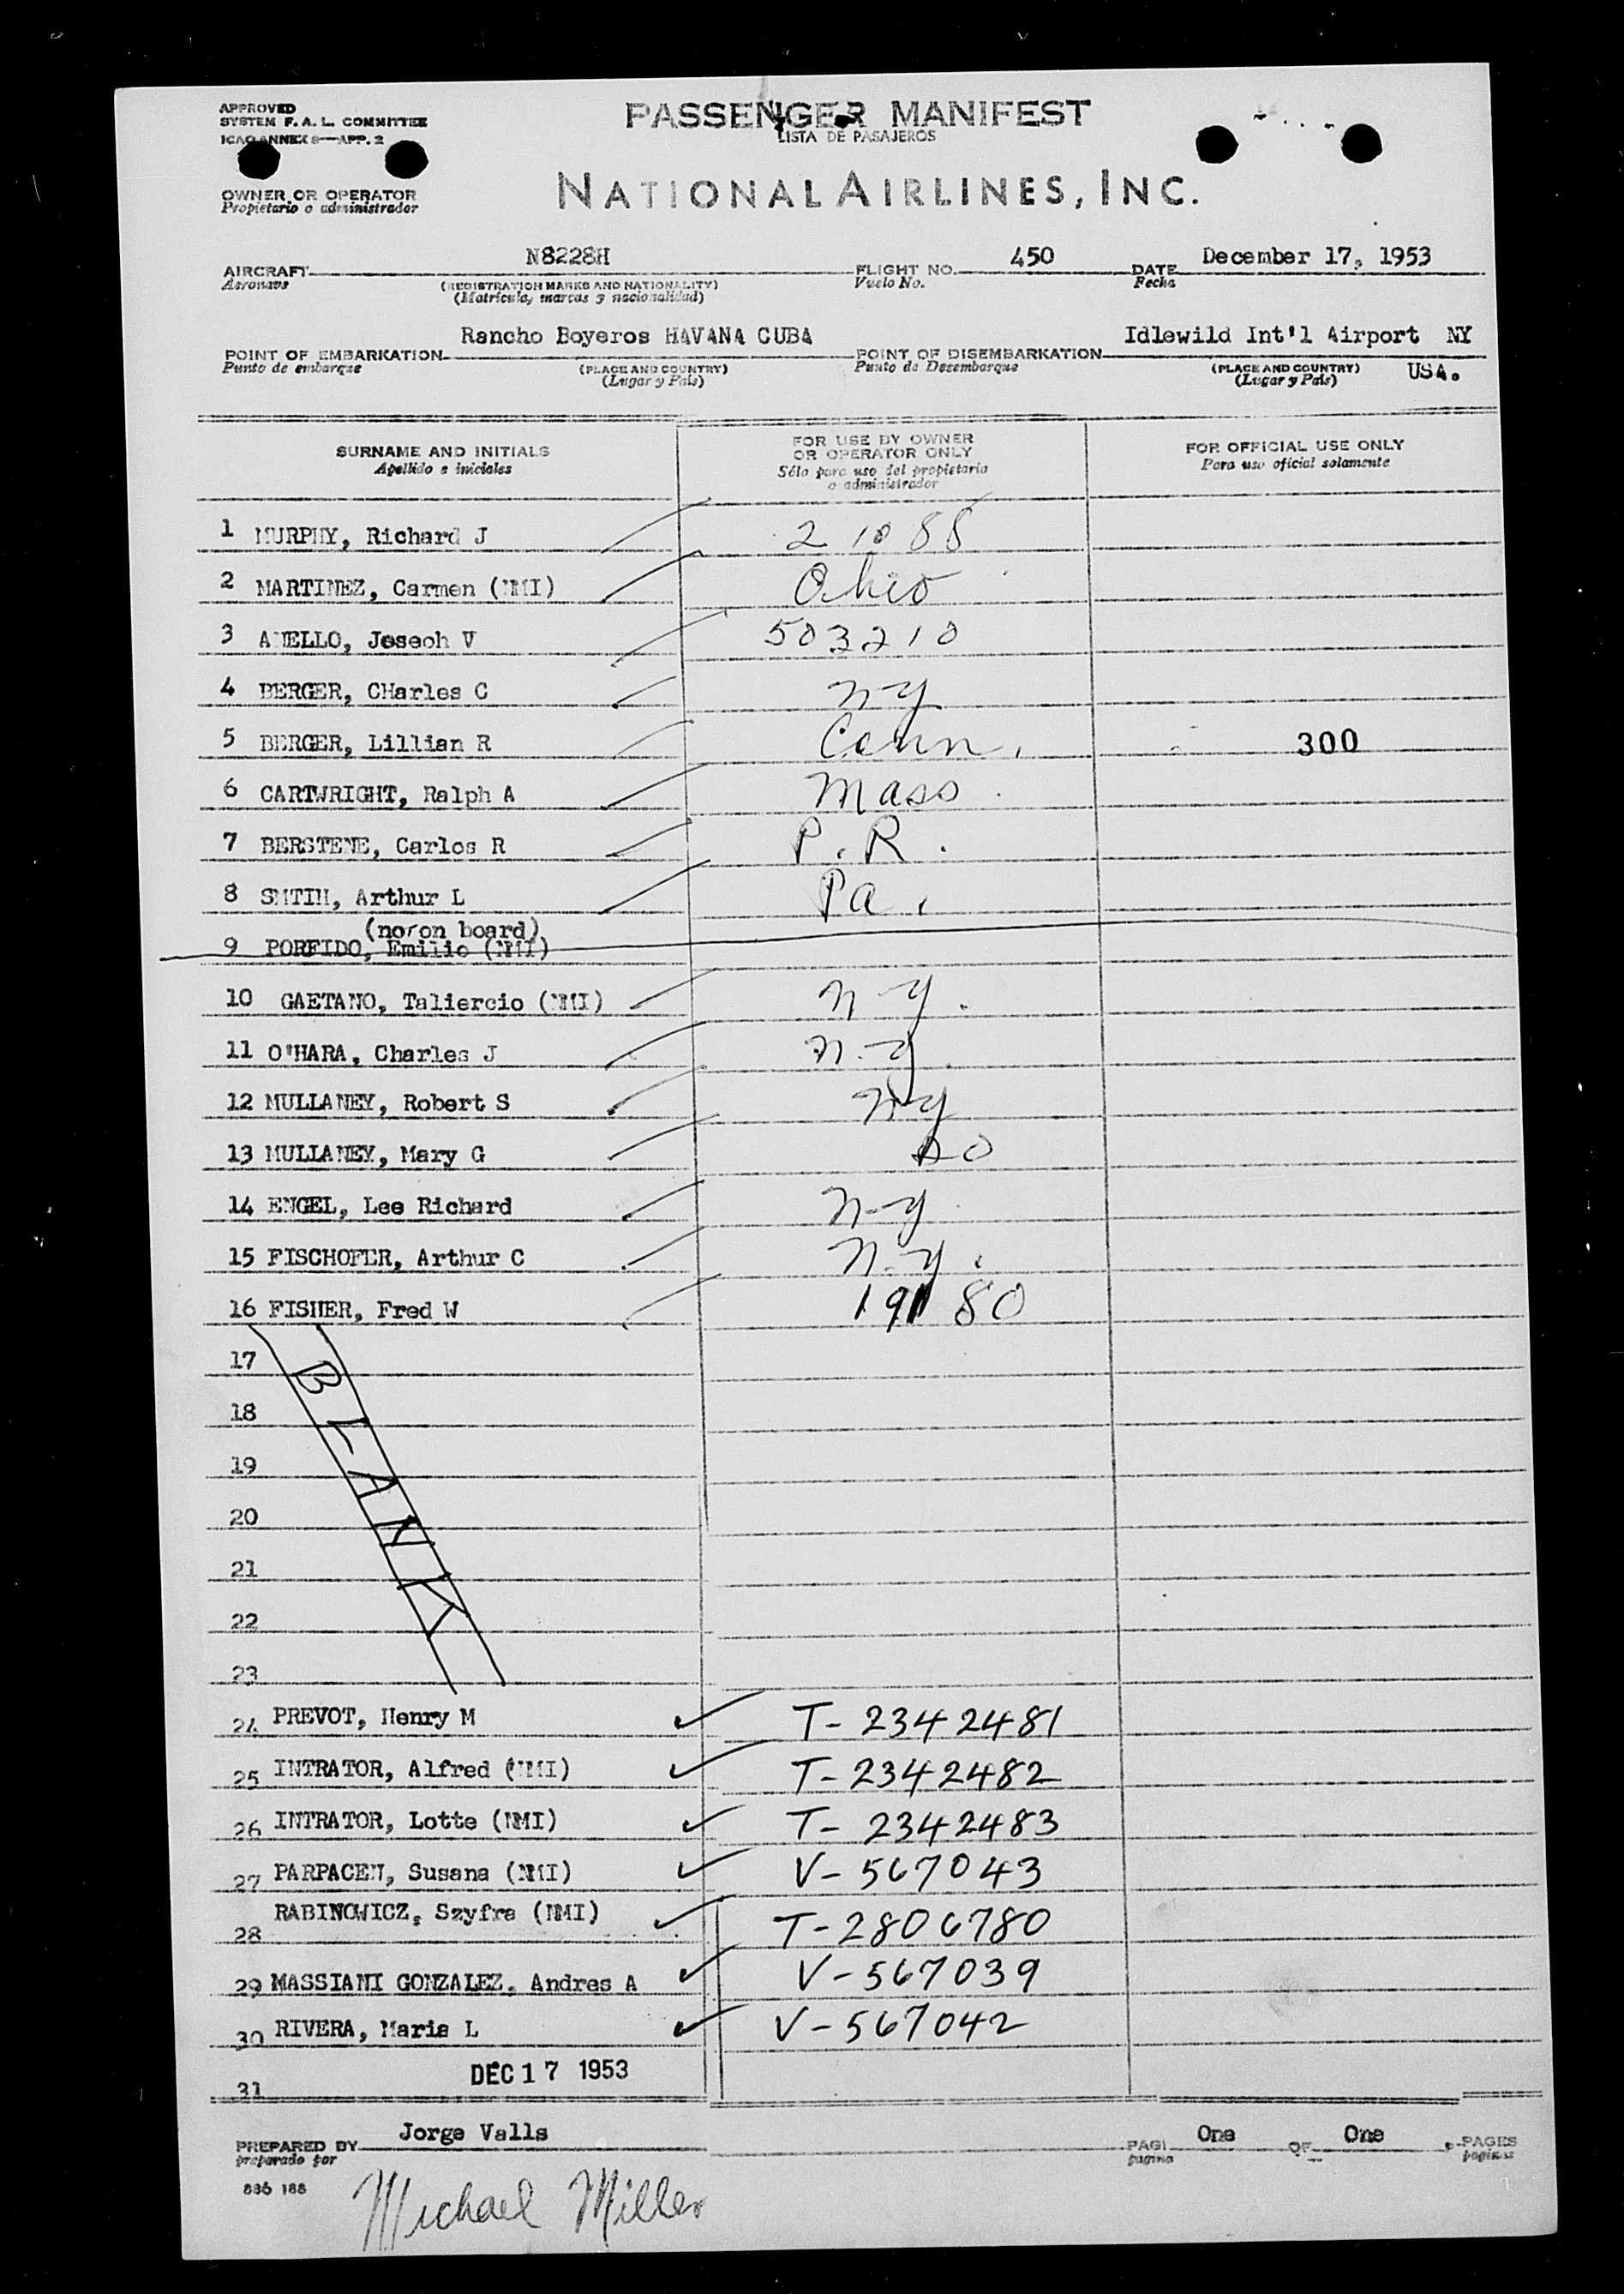 APPROVED
SYSTEM F. A. L. COMMITTEE
ICAO ANNEX 9—APP. 2
PASSENGER MANIFEST
LISTA DE PASAJEROS
OWNER OR OPERATOR
Propietario o administrador
NATIONAL AIRLINES, INC.
AIRCRAFT N8228H FLIGHT NO. 450 DATE December 17, 1953
Aeronave (REGISTRATION MARKS AND NATIONALITY) Vuelo No. Fecha
(Matricula, marcas y nacionalidad)
POINT OF EMBARKATION Rancho Boyeros HAVANA CUBA POINT OF DISEMBARKATION Idlewild Int'l Airport NY
Punto de embarque (PLACE AND COUNTRY) Punto de Desembarque (PLACE AND COUNTRY) USA.
(Lugar y País) (Lugar y País)
SURNAME AND INITIALS FOR USE BY OWNER OR OPERATOR ONLY FOR OFFICIAL USE ONLY
Apellido e iniciales Sólo para uso del propietario o administrador Para uso oficial solamente
1 MURPHY, Richard J 2 10 88
2 MARTINEZ, Carmen (NMI) Ohio
3 ANELLO, Joseoh V 503210
4 BERGER, CHarles C N-Y
5 BERGER, Lillian R Conn. 300
6 CARTWRIGHT, Ralph A Mass.
7 BERSTENE, Carlos R P.R.
8 SMTIH, Arthur L Pa.
(no on board)
9 PORFIDO, Emilio (NMI)
10 GAETANO, Taliercio (NMI) N-Y.
11 O'HARA, Charles J N.Y.
12 MULLANEY, Robert S N-Y
13 MULLANEY, Mary G DO
14 ENGEL, Lee Richard N-Y
15 FISCHOFER, Arthur C N-Y.
16 FISHER, Fred W 191 80
17
18
19
20
21
22
23
BLANK
24 PREVOT, Henry M T-2342481
25 INTRATOR, Alfred (NMI) T-2342482
26 INTRATOR, Lotte (NMI) T-2342483
27 PARPACEN, Susana (NMI) V-567043
28 RABINOWICZ, Szyfra (NMI) T-2806780
29 MASSIANI GONZALEZ, Andres A V-567039
30 RIVERA, Maria L V-567042
31 DEC 17 1953
PREPARED BY Jorge Valls PAGE One OF One PAGES
preparado por pagina paginas
886 188
Michael Miller